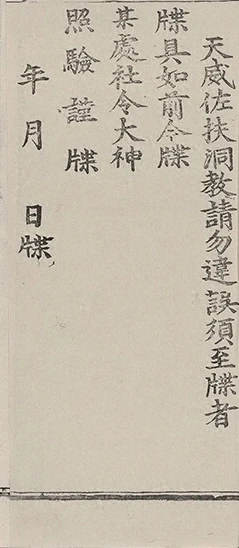 天威佐扶洞教請勿違誤須至牒者
牒具如前今牒
某處社令大神
照驗謹牒
年月日牒